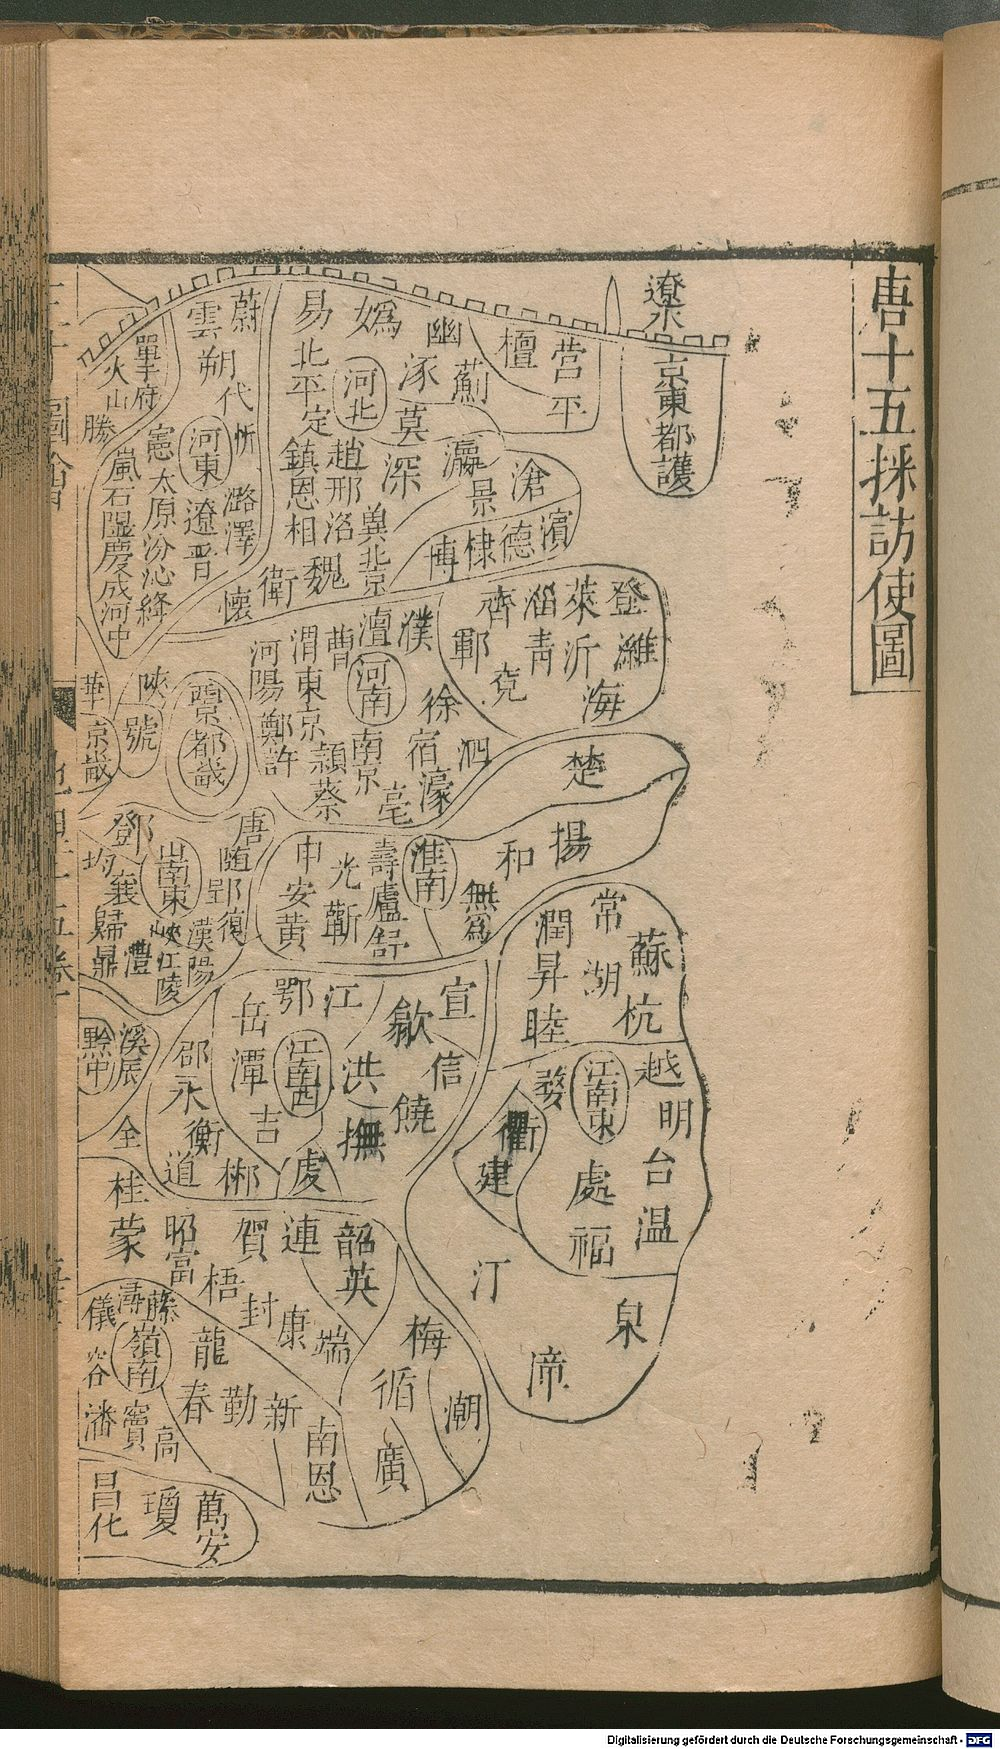 唐十五採訪使圖
遼水
京東都護
營平
檀
薊
幽
涿
莫
嬀
河北
易
北平
定
趙
邢
洺
鎮
恩
相
深
瀛
景
滄
濱
德
棣
博
冀
北京
魏
衛
懷
蔚
雲
朔
代
忻
河東
潞
澤
遼
晉
單于府
火山
勝
憲
太原
汾
沁
絳
嵐
石
隰
慶
成
河中
登
維
萊
沂
海
淄
青
齊
兗
鄆
濮
澶
河南
曹
渭
東京
河陽
鄭
許
潁
蔡
南京
亳
徐
宿
濠
泗
陜
號
西京
都畿
華
京畿
楚
揚
和
無爲
淮南
壽
廬
舒
光
蘄
申
安
黃
唐
隨
郢
復
鄧
均
襄
歸
鼎
山南東
峽
江陵
漢陽
澧
常
潤
昇
湖
蘇
杭
睦
越
明
台
温
江南東
婺
衢
建
處
福
汀
泉
漳
宣
歙
信
饒
江
鄂
岳
潭
江南西
洪
撫
吉
虔
邵
永
衡
道
郴
溪
辰
黔中
全
桂
蒙
昭
富
賀
連
韶
英
梧
封
康
端
梅
循
潮
廣
南恩
新
勤
春
龍
潯
藤
嶺南
儀
容
潘
竇
高
昌化
瓊
萬安
Digitalisierung gefördert durch die Deutsche Forschungsgemeinschaft - DFG